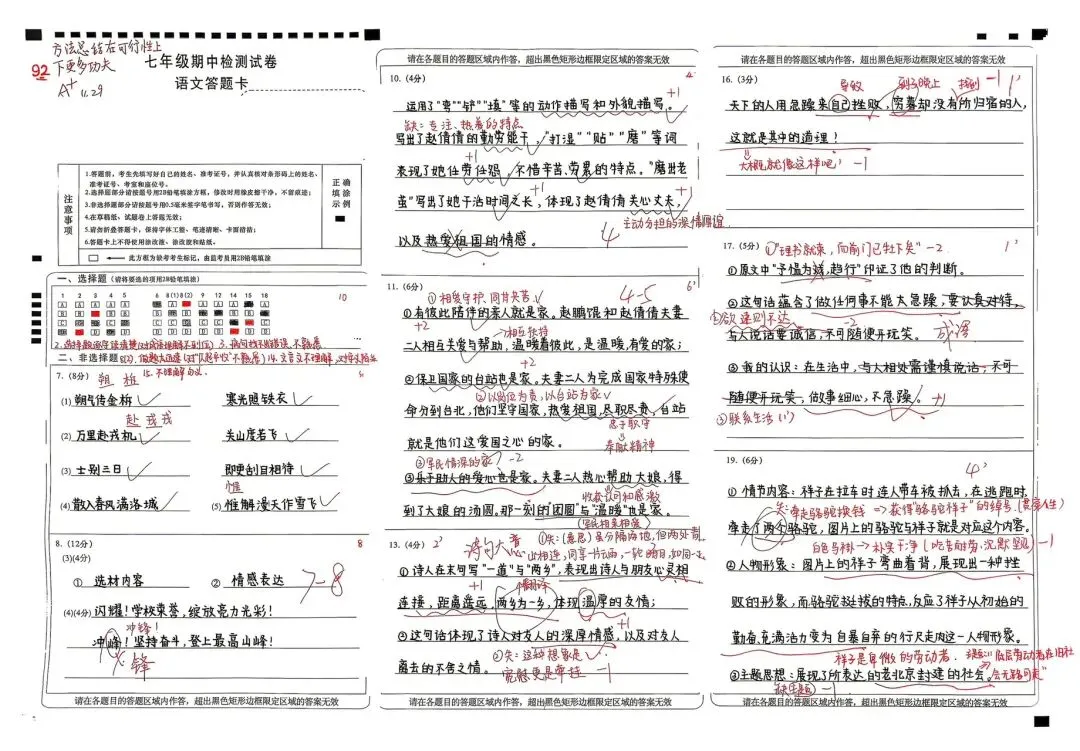 方法总结在可行性上
下更多功夫
92
A+ 11.29
七年级期中检测试卷
语文答题卡
注意事项
1.答题前，考生先填写好自己的姓名、准考证号，并认真核对条形码上的姓名、
准考证号、考室和座位号。
2.选择题部分请按题号用2B铅笔填涂方框，修改时用橡皮擦干净，不留痕迹；
3.非选择题部分请按题号用0.5毫米签字笔书写，否则作答无效；
4.在草稿纸、试题卷上答题无效；
5.请勿折叠答题卡，保持字体工整、笔迹清晰、卡面清洁；
6.答题卡上不得使用涂改液、涂改胶和贴纸。
正确填涂示例
此方框为缺考考生标记，由监考员用2B铅笔填涂
一、选择题（请将要选的项用2B铅笔填涂）
10
1 2 3 4 5 6 8(1) 8(2) 9 12 14 15 18
二、非选择题
7.（8分）
朔 柝
(1) 朔气传金柝 寒光照铁衣
赴 戎戎
(2) 万里赴戎机 关山度若飞
(3) 士别三日 即更刮目相待
惟
(4) 散入春风满洛城 (5) 惟解漫天作雪飞
8.（12分）
8
(3)(4分)
① 选材内容 ② 情感表达
7-8
(4)(4分) 闪耀！学校荣誉，绽放亮力光彩！
冲锋！
冲峰！坚持奋斗，登上最高山峰！
锋
请在各题目的答题区域内作答，超出黑色矩形边框限定区域的答案无效
请在各题目的答题区域内作答，超出黑色矩形边框限定区域的答案无效
10.（4分）
4'
运用了“弯”“铲”“填”等的动作描写和外貌描写。
+1
缺：专注、热着的特点
写出了赵倩倩的勤劳能干，“打湿”“贴”“磨”等词
+1
表现了她任劳任怨，不惜辛苦、劳累的特点。“磨出老
+1
茧”写出了她干活时间之长，体现了赵倩倩关心丈夫，
主动分担的深情厚谊
以及热爱祖国的情感。
4
11.（6分）
6'
①相爱守护、同甘共苦
4-5
①有彼此陪伴的亲人就是家。赵鹏锟和赵倩倩夫妻
+2
相互扶持
二人相互关爱与帮助，温暖着彼此，是温暖，有爱的家；
②保卫国家的台站也是家。夫妻二人为完成国家特殊使
②以岗位为责，以台站为家
命分到台北，他们坚守国家，热爱祖国，尽职尽责，台站
忠于职守
就是他们这爱国之心的家。
奉献精神
③军民情深的家 -2
③乐于助人的爱心也是家。夫妻二人热心帮助大娘，得
收获认可和感激
到了大娘的汤圆。那一刻的“团圆”与“温暖”也是家。
（军民亲相爱）
13.（4分）
2'
诗句大意
①诗人在末句写“一道”与“两乡”，表现出诗人与朋友心灵相
+1
连接，距离遥远，两乡为一乡，体现温厚的友情；
+1
②这句话体现了诗人对友人的深厚情感，以及对友人
②失：这种想象是
离去的不舍之情。
宽慰更是牵挂 -1
请在各题目的答题区域内作答，超出黑色矩形边框限定区域的答案无效
请在各题目的答题区域内作答，超出黑色矩形边框限定区域的答案无效
16.（3分）
导致 到了晚上 -1 1'
天下的人用急躁来自己挫败，穷暮却没有所归宿的人，
这就是其中的道理！
大概就像这样吧！ -1
17.（5分）
①“理书就束，而前门已牡下矣” -2
1'
①原文中“予愠为诚，趋行”印证了他的判断。
②这句话蕴含了做任何事不能太急躁，要认真对待，
②欲速则不达
-2
与人说话要诚信，不可随便开玩笑。
③我的认识：在生活中，与人相处需谨慎说话，不可
随便开玩笑，做事细心，不急躁。
+1
③联系生活(1')
19.（6分）
4'
①情节内容：祥子在拉车时连人带车被抓去，在逃跑时，
失：牵走骆驼换钱 => 获得骆驼祥子”的绰号
牵走了两个骆驼，图片上的骆驼与祥子就是对应这个内容。
白色马褂→朴实干净（吃苦耐劳、沉默坚毅）-1
②人物形象：图片上的祥子弯曲着背，展现出一种挫
败的形象，而骆驼挺拔的特点，反应了祥子从初始的
勤奋充满活力变为自暴自弃的行尸走肉这一人物形象。
祥子是卑微的劳动者
③主题思想：展现了所表达的老北京封建的社会。
缺主题 -1
请在各题目的答题区域内作答，超出黑色矩形边框限定区域的答案无效